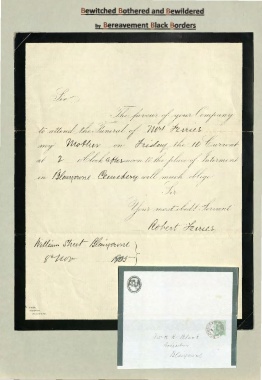 Bewitched Bothered and Bewildered
by Bereavement Black Borders
Sir
The favour of your Company
to attend the Funeral of Mrs Ferrier
my Mother on Friday the 10 Current
at 2 o'Clock afternoon to the place of Interment
in Blairgowrie Cemetery will much oblige
Sir
Your most Obdt Servant
Robert Ferrier
William Street Blairgowrie
8th Nov
Blairgowrie